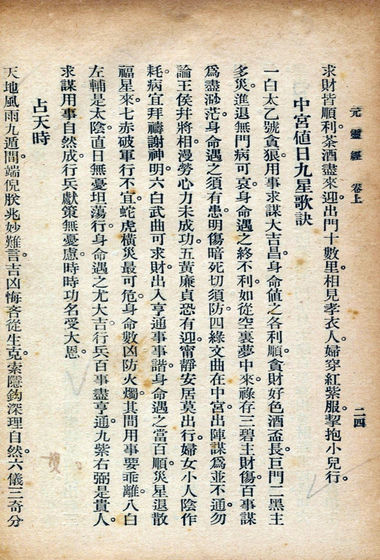 元靈經 卷上
二四
求財皆順利。茶酒盡來迎。出門十數里。相見孝衣人。婦穿紅紫服。挐抱小兒行。
中宮値日九星歌訣
一白太乙號貪狼。用事求謀大吉昌。身命値之各利順。貪財好色酒盃長。巨門二黑主
多災。進退無門病可哀。身命遇之終不利。如從空裏夢中來。祿存三碧主財傷。百事謀
為盡渺茫。身命遇之須有患。明傷暗死切須防。四綠文曲在中宮。出陣謀為並不通。勿
論王侯并將相。漫勞心力未成功。五黃廉貞恐有迎。甯靜安居莫出行。婦女小人陰作
耗。病宜拜禱謝神明。六白武曲可求財。出入亨通事事諧。身命遇之當百順。災星退散
福星來。七赤破軍行不宜。蛇虎橫災最可危。身命數凶防火燭。其間用事要乖離。八白
左輔是太陰。直日無憂坦蕩行。身命遇之尤大吉。行兵百事盡亨通。九紫右弼是貴人。
求謀用事自然成。行兵獻策無憂慮。時時功名受大恩。
占天時
天地風雨九遁間。端倪朕兆妙難言。吉凶悔吝從生克。索隱鈎深理自然。六儀三奇分